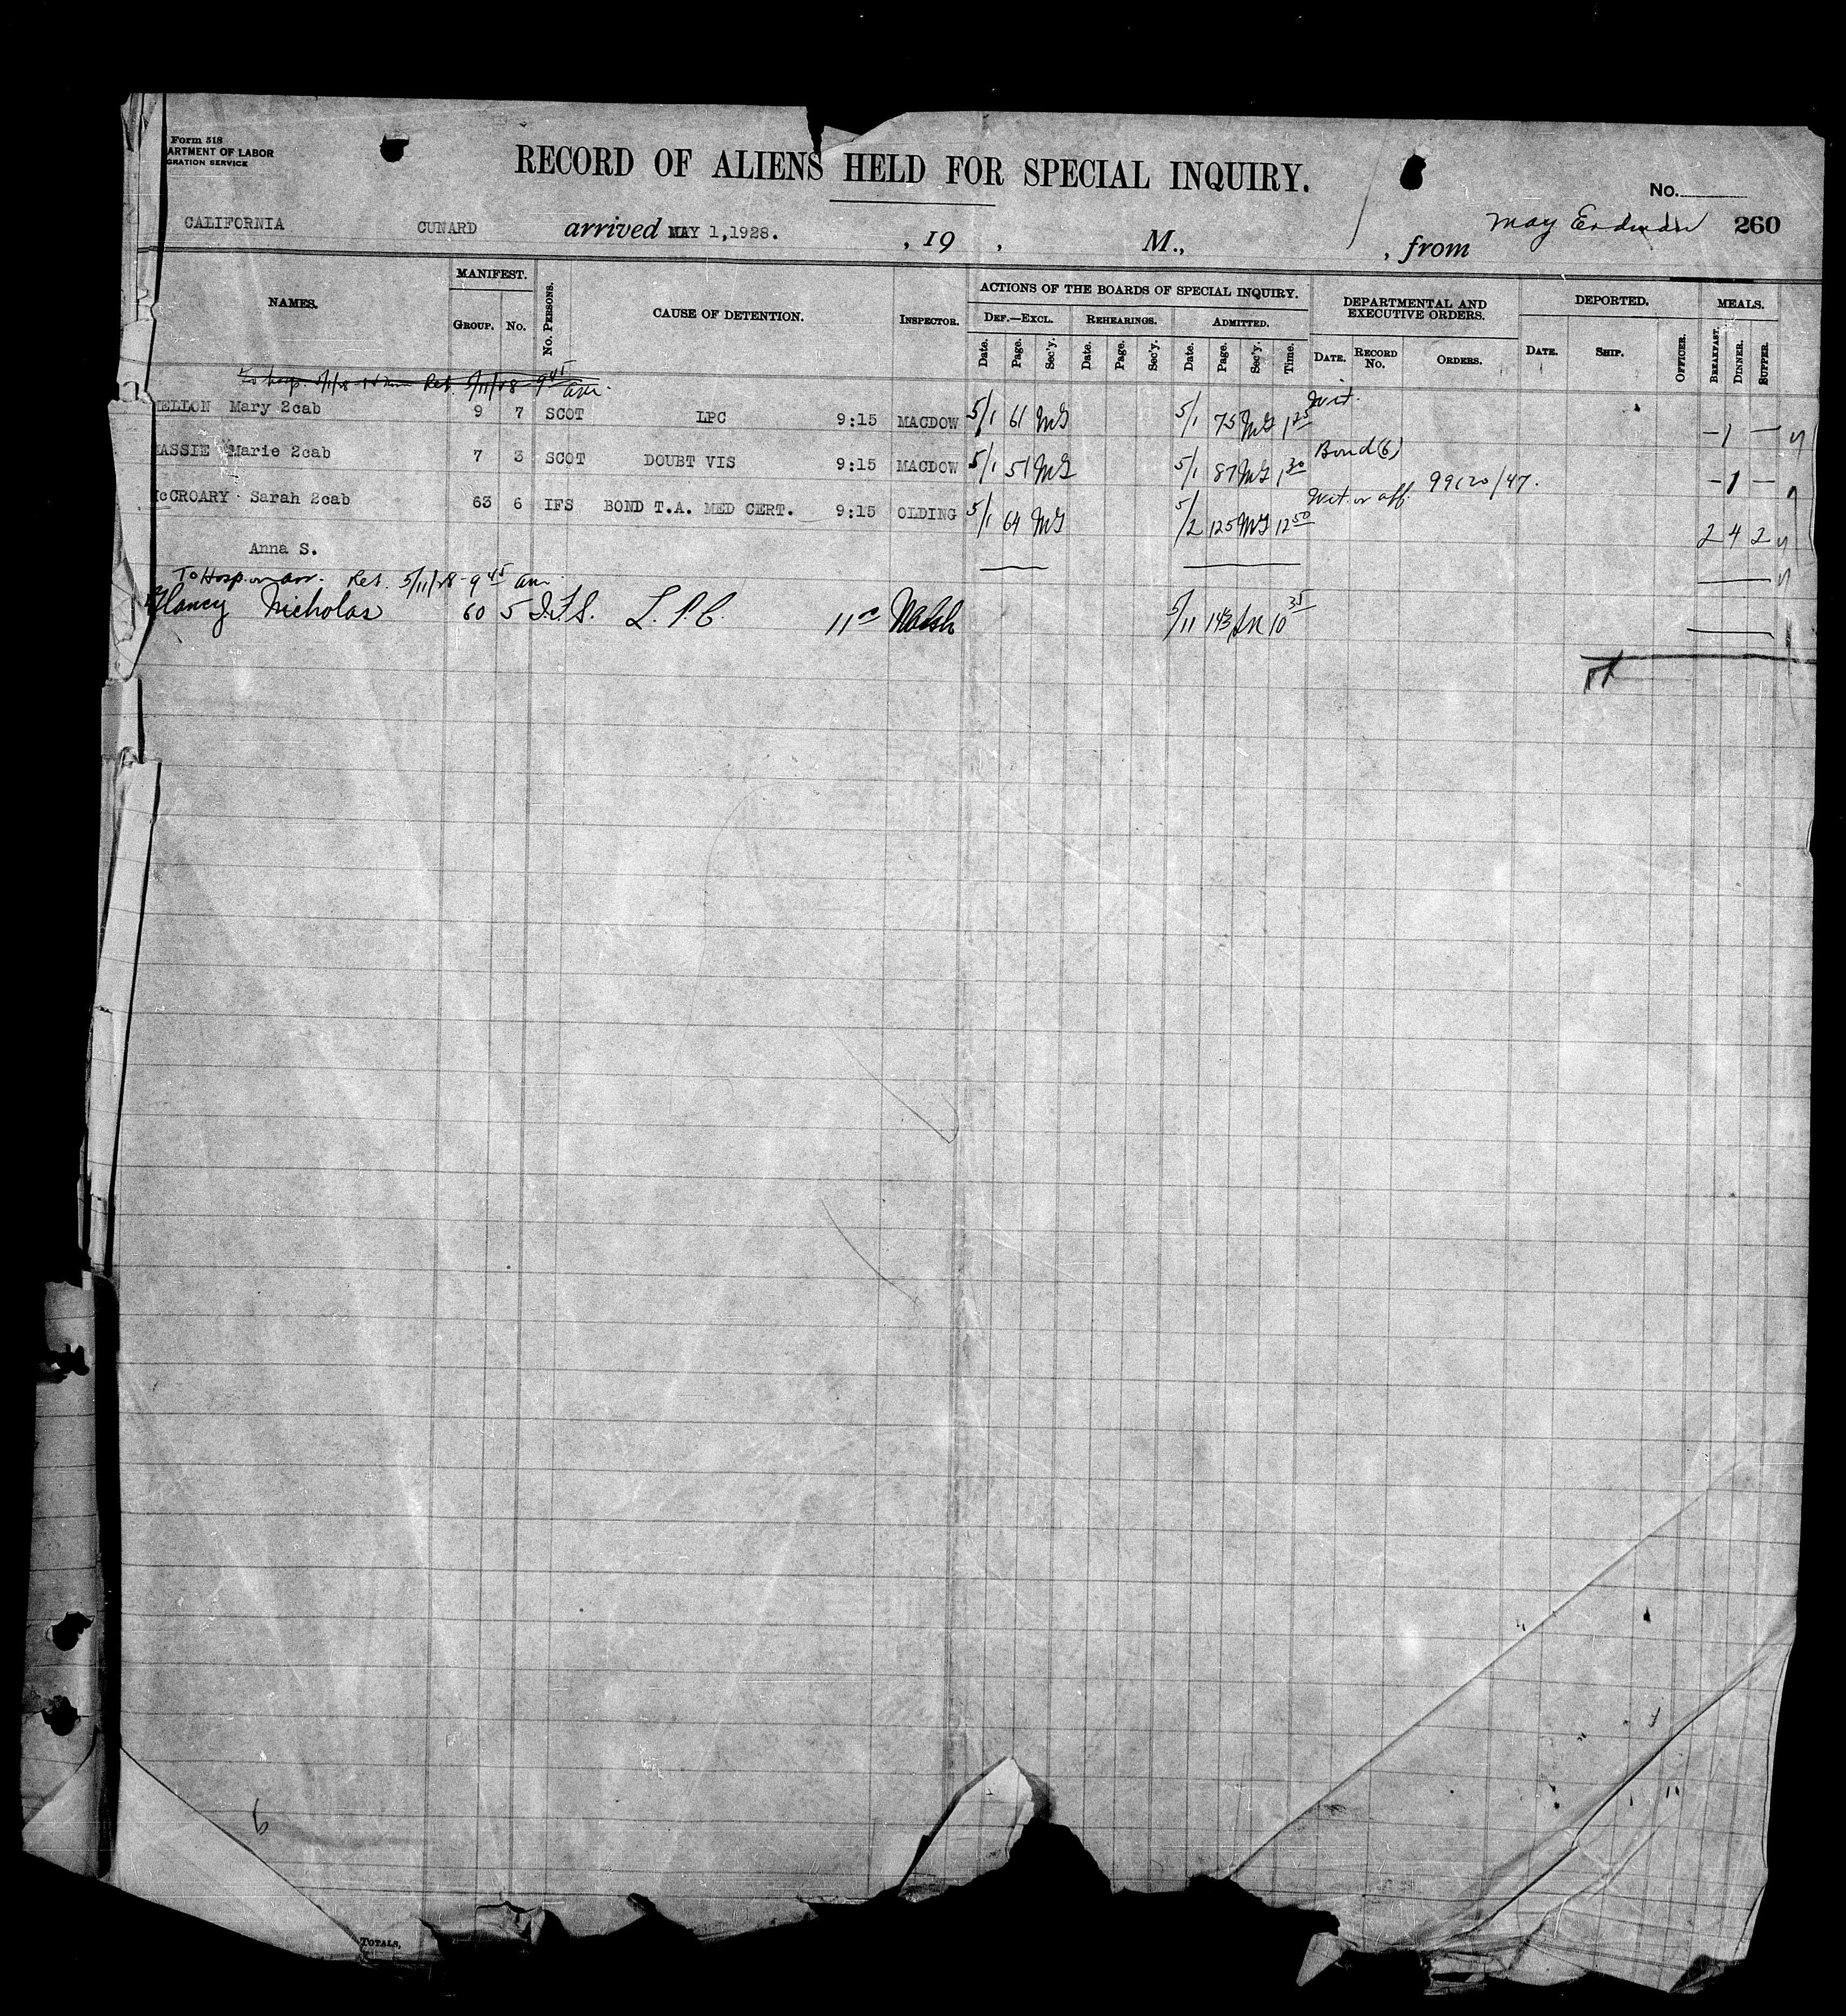 Form 518
ARTMENT OF LABOR
GRATION SERVICE
RECORD OF ALIENS HELD FOR SPECIAL INQUIRY.
No.
CALIFORNIA CUNARD arrived MAY 1,1928. , 19 , M., , from May Erdman 260
NAMES. MANIFEST. GROUP. No. No. PERSONS. CAUSE OF DETENTION. INSPECTOR.
ACTIONS OF THE BOARDS OF SPECIAL INQUIRY. DEF.—EXCL. REHEARINGS. ADMITTED.
Date. Page. Sec'y. Date. Page. Sec'y. Date. Page. Sec'y. Time.
DEPARTMENTAL AND EXECUTIVE ORDERS. DATE. RECORD No. ORDERS.
DEPORTED. DATE. SHIP. OFFICER.
MEALS. BREAKFAST. DINNER. SUPPER.
To hosp. 5/1/28 Ret. 5/11/28 9 45 am.
ELLON Mary 2cab 9 7 SCOT LPC 9:15 MACDOW 5/1 61 MG 5/1 75 MG 1 25 Wit. — 1 —
ASSIE Marie 2cab 7 3 SCOT DOUBT VIS 9:15 MACDOW 5/1 51 MG 5/1 87 MG 1 30 Bond (6) 99120/47. — 1 —
McCROARY Sarah 2cab 63 6 IFS BOND T.A. MED CERT. 9:15 OLDING 5/1 64 MG 5/2 125 MG 12 50 Wit. or aff. 2 4 2
Anna S.
To Hosp. on arr. Ret. 5/11/28 - 9 45 am.
Clancy Nicholas 60 5 I.F.S. L.P.C. 11 Walsh 5/11 143 10 35
TOTALS,